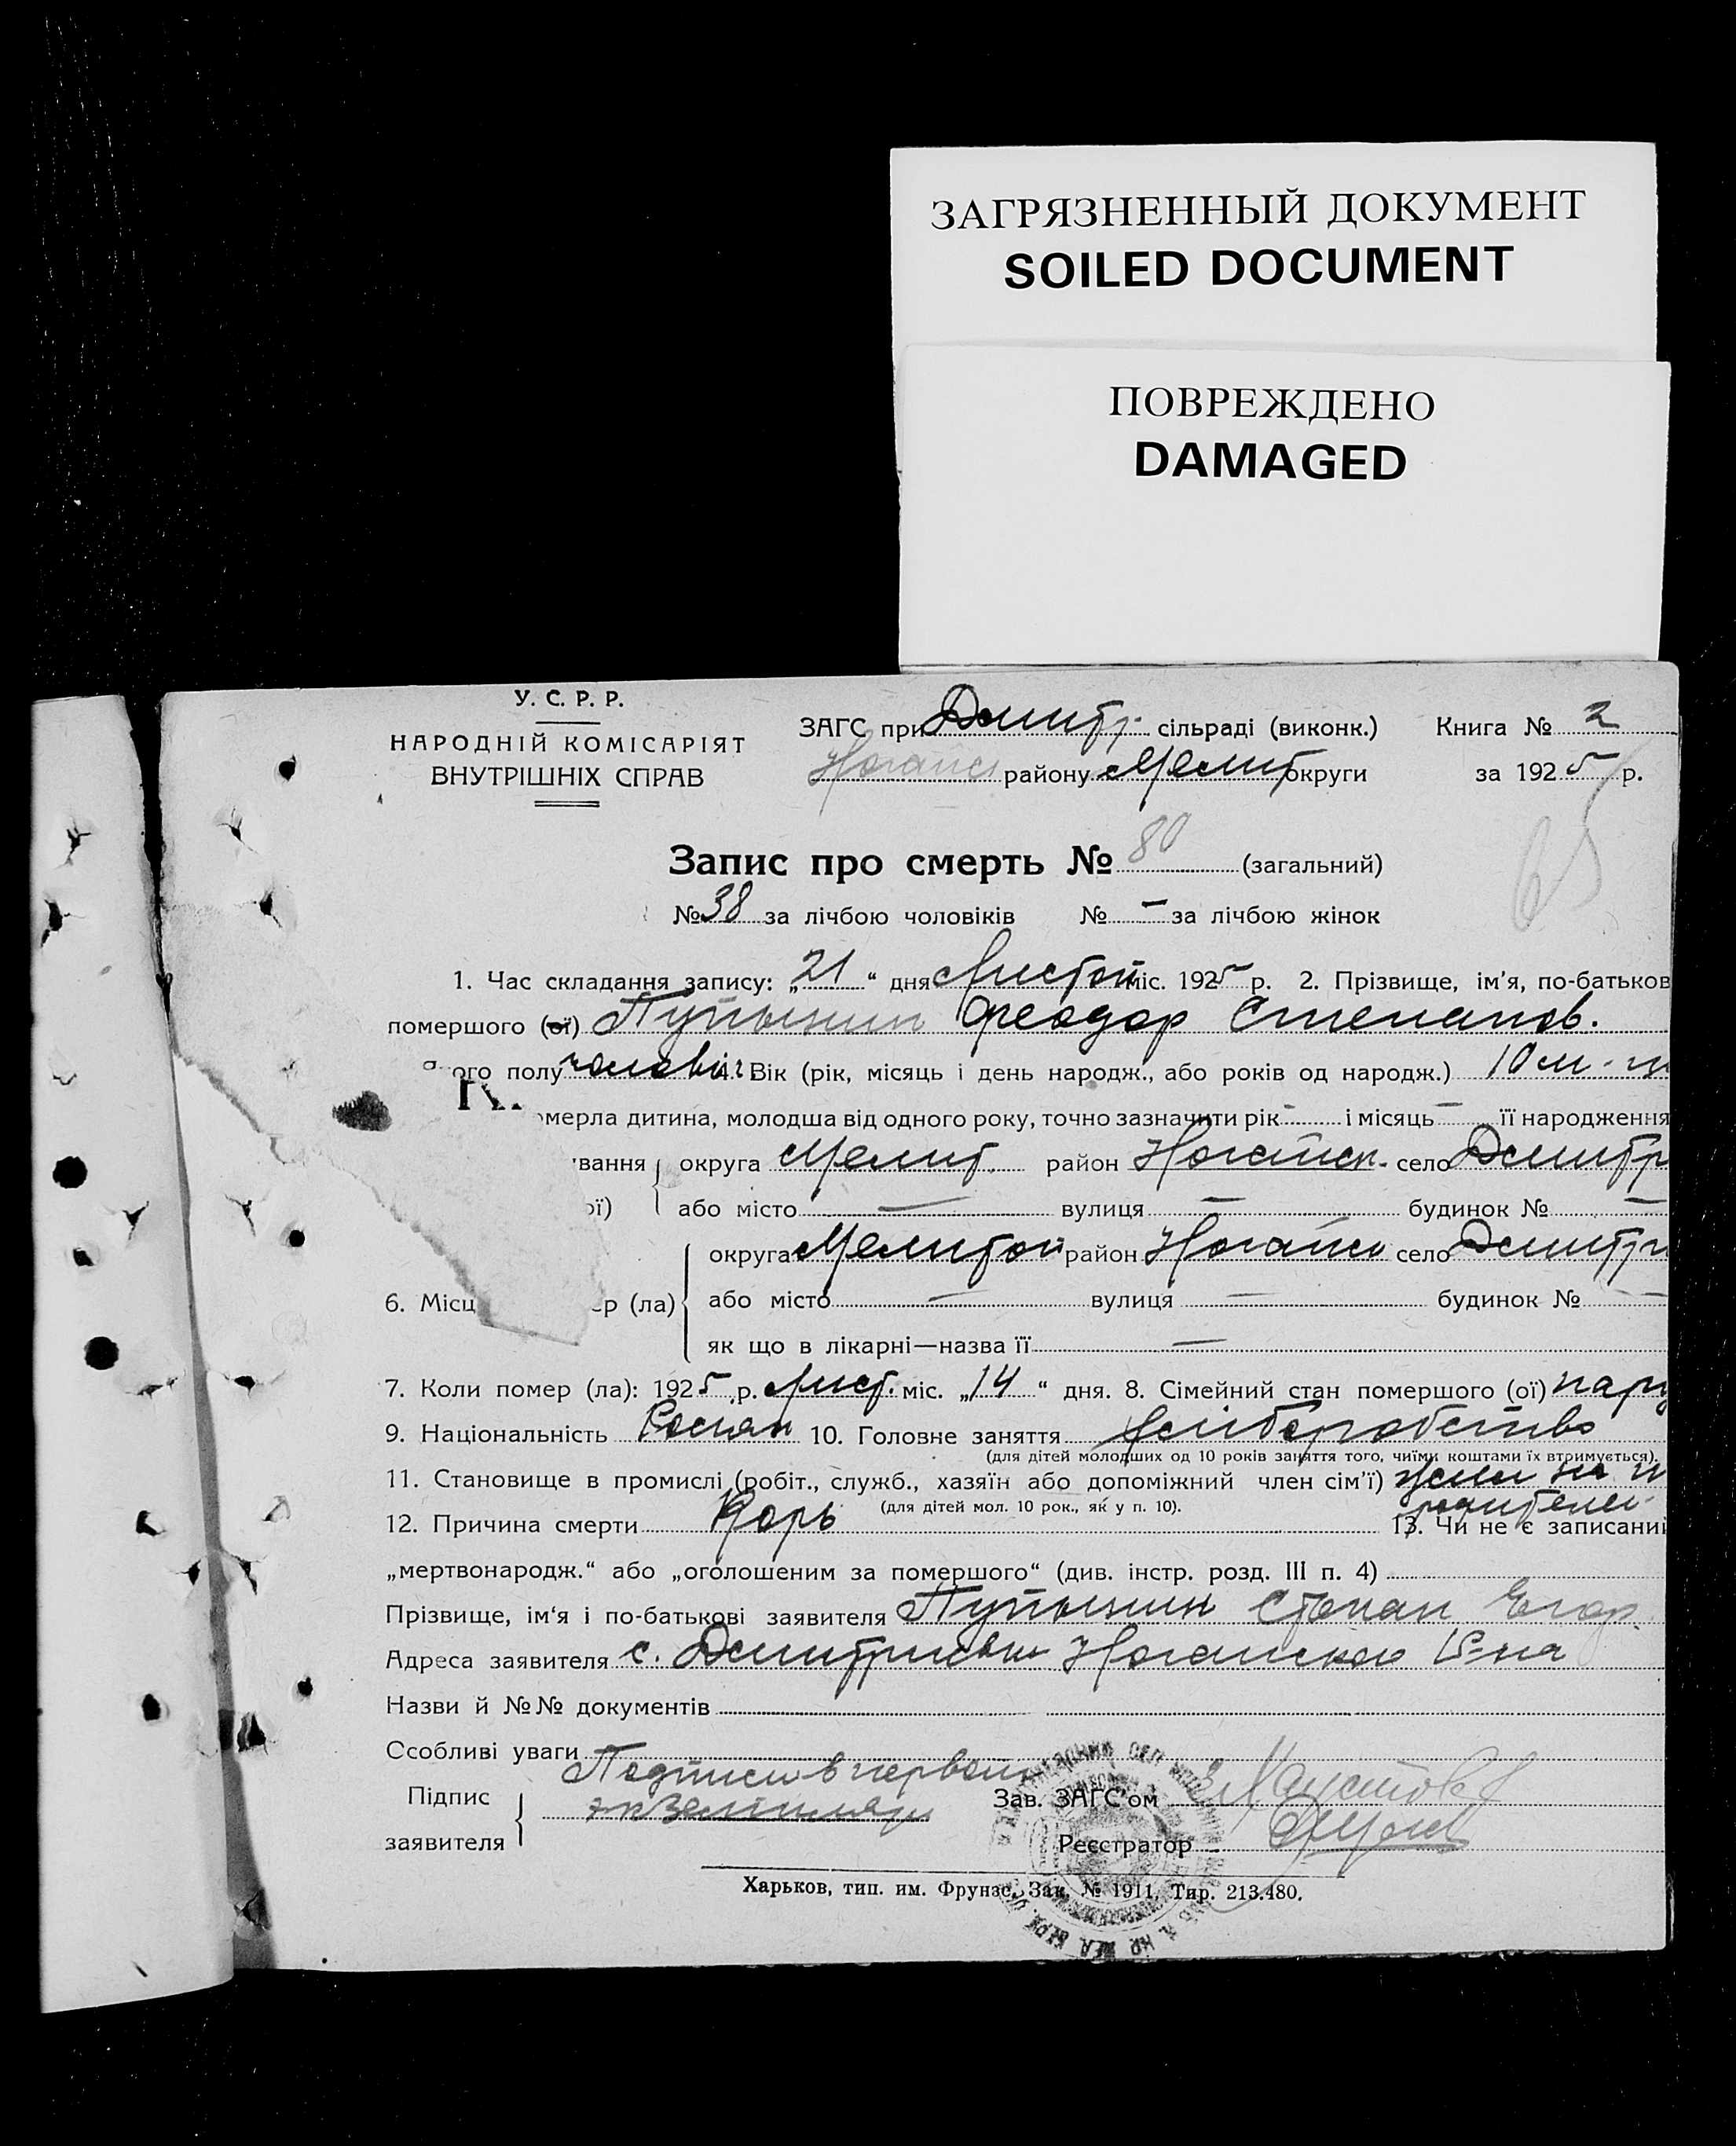 ЗАГРЯЗНЕННЫЙ ДОКУМЕНТ
SOILED DOCUMENT
ПОВРЕЖДЕНО
DAMAGED
У. С. Р. Р.
НАРОДНІЙ КОМІСАРІЯТ
ВНУТРІШНІХ СПРАВ
ЗАГС при Дмитр. сільраді (виконк.) Книга № 2
Ногайск району Мелит округи за 1925 р.
65
Запис про смерть № 80 (загальний)
№ 38 за лічбою чоловіків № — за лічбою жінок
1. Час складання запису: „21“ дня Листоп міс. 1925 р. 2. Прізвище, ім'я, по-батьков
помершого (ої) Пупынин Феодор Степанов.
ого полу чоловіч. 4. Вік (рік, місяць і день народж., або років од народж.) 10 м-ц
омерла дитина, молодша від одного року, точно зазначити рік — і місяць — її народження
ування округа Мелит. район Ногайск. село Дмитр
ої) або місто — вулиця — будинок № —
округа Мелитоп район Ногайск село Дмитр
6. Місц ер (ла) або місто — вулиця — будинок № —
як що в лікарні—назва її —
7. Коли помер (ла): 1925 р. Лист. міс. „14“ дня. 8. Сімейний стан помершого (ої)
9. Національність Росіян 10. Головне заняття хліборобство
(для дітей молодших од 10 років заняття того, чиїми коштами їх втримується).
11. Становище в промислі (робіт., служб., хазяїн або допоміжний член сім'ї)
(для дітей мол. 10 рок., як у п. 10).
12. Причина смерти Корь 13. Чи не є записаний
„мертвонародж.“ або „оголошеним за померщого“ (див. інстр. розд. III п. 4)
Прізвище, ім'я і по-батькові заявителя Пупынин Степан Егор.
Адреса заявителя с. Дмитриевки Ногайского р-на
Назви й №№ документів
Особливі уваги
Підпис заявителя Подписи в первом экземпляре
Зав. ЗАГС'ом
Реєстратор
Харьков, тип. им. Фрунзе. Зак. № 1911. Тир. 213.480.